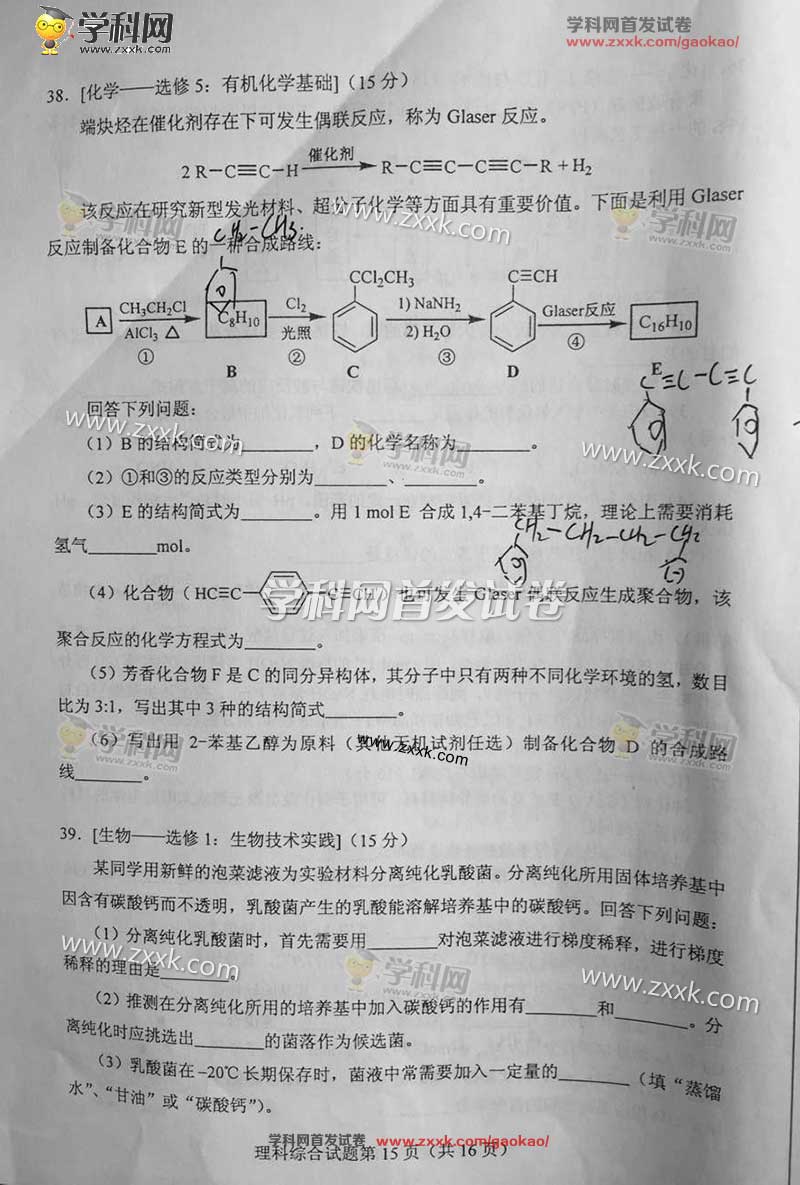 学科网
www.zxxk.com
学科网首发试卷
www.zxxk.com/gaokao/
38. [化学——选修 5：有机化学基础]（15 分）
端炔烃在催化剂存在下可发生偶联反应，称为 Glaser 反应。
2 R−C≡C−H 催化剂 R−C≡C−C≡C−R + H2
该反应在研究新型发光材料、超分子化学等方面具有重要价值。下面是利用 Glaser
反应制备化合物 E 的一种合成路线：
CH2-CH3
CCl2CH3 C≡CH
A CH3CH2Cl AlCl3 △ ① C8H10 Cl2 光照 ② 1) NaNH2 2) H2O ③ Glaser反应 ④ C16H10
B C D E
C≡C-C≡C
回答下列问题：
（1）B 的结构简式为________，D 的化学名称为________。
（2）①和③的反应类型分别为________、________。
（3）E 的结构简式为________。用 1 mol E 合成 1,4−二苯基丁烷，理论上需要消耗
CH2-CH2-CH2-CH2
氢气________mol。
（4）化合物（HC≡C− −C≡CH）也可发生 Glaser 偶联反应生成聚合物，该
聚合反应的化学方程式为________。
（5）芳香化合物 F 是 C 的同分异构体，其分子中只有两种不同化学环境的氢，数目
比为 3:1，写出其中 3 种的结构简式________。
（6）写出用 2−苯基乙醇为原料（其他无机试剂任选）制备化合物 D 的合成路
线________。
39. [生物——选修 1：生物技术实践]（15 分）
某同学用新鲜的泡菜滤液为实验材料分离纯化乳酸菌。分离纯化所用固体培养基中
因含有碳酸钙而不透明，乳酸菌产生的乳酸能溶解培养基中的碳酸钙。回答下列问题：
（1）分离纯化乳酸菌时，首先需要用________对泡菜滤液进行梯度稀释，进行梯度
稀释的理由是________。
（2）推测在分离纯化所用的培养基中加入碳酸钙的作用有________和________。分
离纯化时应挑选出________的菌落作为候选菌。
（3）乳酸菌在 −20℃ 长期保存时，菌液中常需要加入一定量的________（填“蒸馏
水”、“甘油”或“碳酸钙”）。
学科网首发试卷 www.zxxk.com/gaokao/
理科综合试题第 15 页（共 16 页）